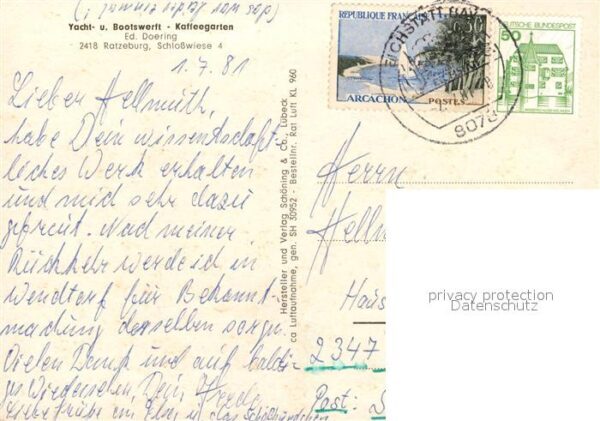 Yacht- u. Bootswerft · Kaffeegarten
Ed. Doering
2418 Ratzeburg, Schloßwiese 4
1.7.81
Lieber Hellmuth,
habe Dein wissenschaft-
liches Werk erhalten
und mich sehr dazu
gefreut. Nach meiner
Rückkehr werde ich in
Wendtorf für Bekannt-
machung desselben sorgen.
Vielen Dank und auf baldi-
ges Wiedersehen, Dein
Liebe Grüße an
Hersteller und Verlag Schöning & Co., Lübeck
ca Luftaufnahme, gen. SH 30952 · Bestellnr. Rat Luft KL 960
REPUBLIQUE FRANÇAISE
0,30
ARCACHON
POSTES
DEUTSCHE BUNDESPOST
50
EICHSTÄTT
8078
Herrn
Hellm
Haus
2347
Post:
privacy protection
Datenschutz